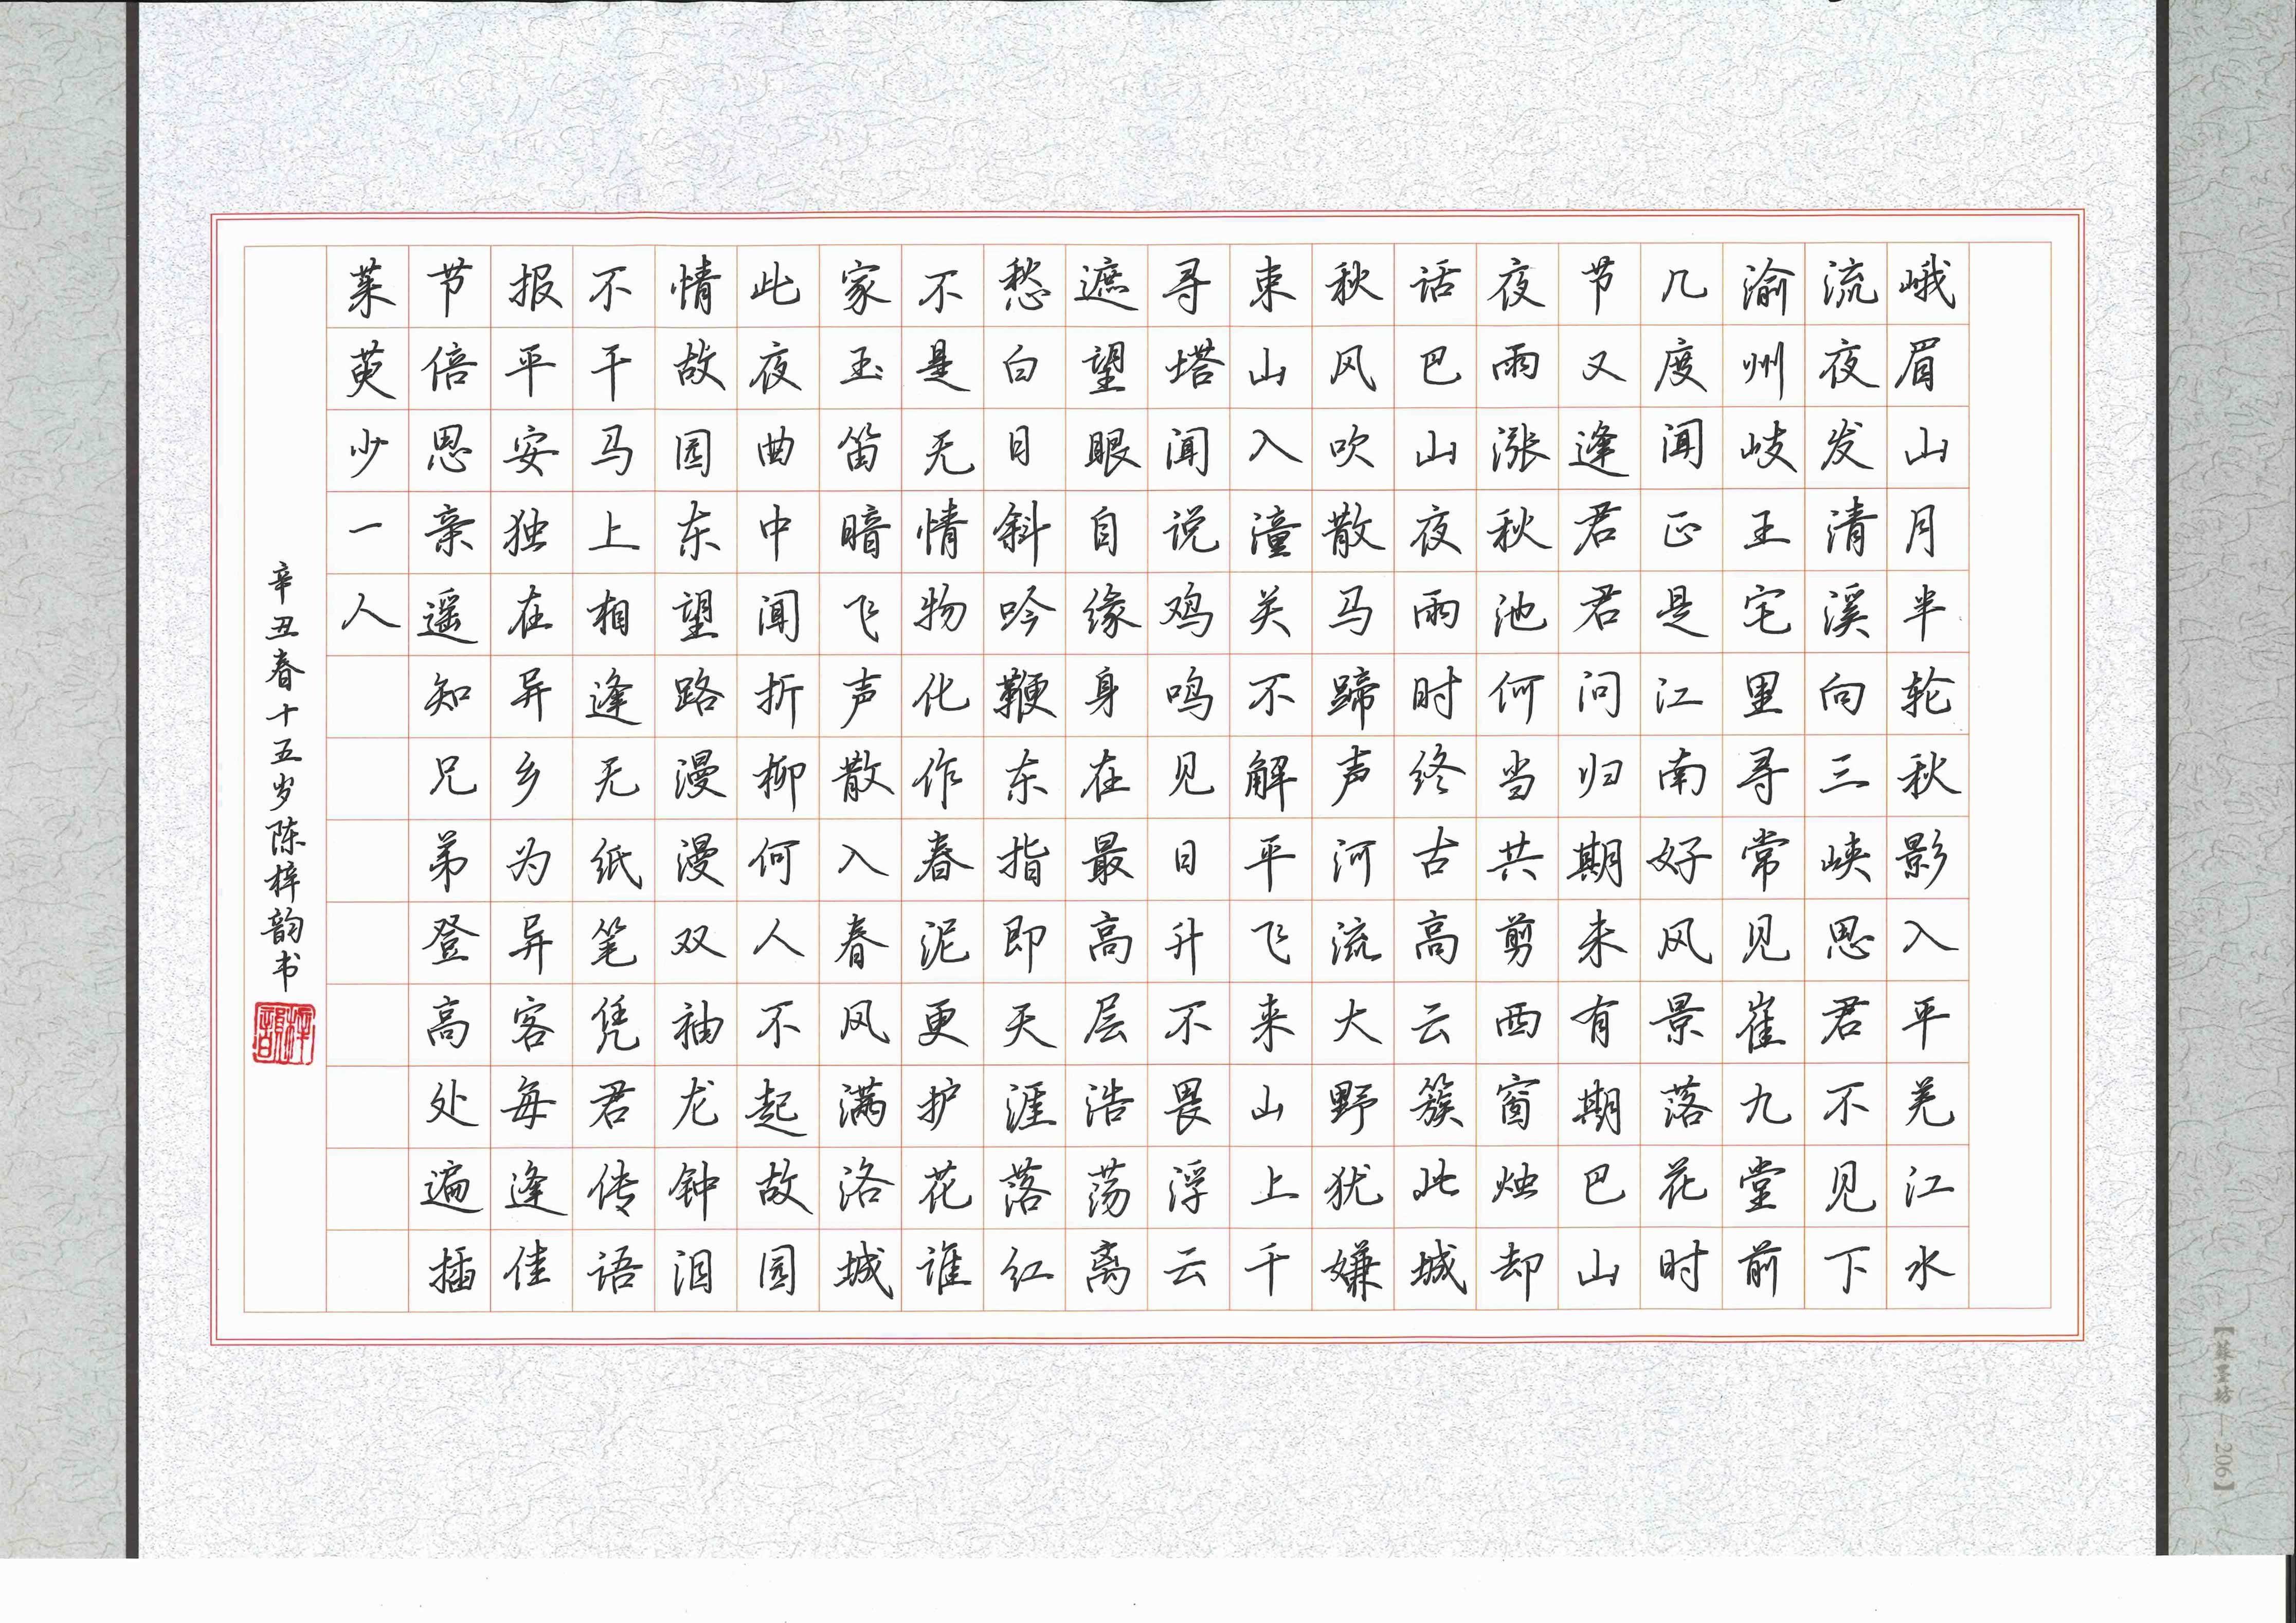 峨眉山月半轮秋影入平羌江水
流夜发清溪向三峡思君不见下
渝州岐王宅里寻常见崔九堂前
几度闻正是江南好风景落花时
节又逢君君问归期未有期巴山
夜雨涨秋池何当共剪西窗烛却
话巴山夜雨时终古高云簇此城
秋风吹散马蹄声河流大野犹嫌
束山入潼关不解平飞来山上千
寻塔闻说鸡鸣见日升不畏浮云
遮望眼自缘身在最高层浩荡离
愁白日斜吟鞭东指即天涯落红
不是无情物化作春泥更护花谁
家玉笛暗飞声散入春风满洛城
此夜曲中闻折柳何人不起故园
情故园东望路漫漫双袖龙钟泪
不干马上相逢无纸笔凭君传语
报平安独在异乡为异客每逢佳
节倍思亲遥知兄弟登高处遍插
茱萸少一人
辛丑春十五岁陈梓韵书
梓韵
【苏墨坊—206】